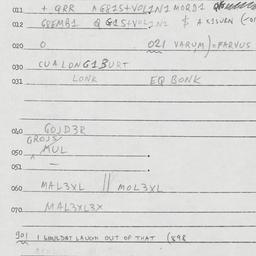 011 + QRR AG815+VOL1N1 MORD1
012 GREMB1 Q G15+VOL1N1 $ AX1SUEN
020 0 021 VARUM)=FARVUS
030 CUALONG13URT
031 LONK EQ BONK
040 GOJD3R
GROJS
050 MUL
051 —
060 MAL3XL || MOL3XL
070 MAL3XL3X
901 I WOULDNT LAUGH OUT OF THAT (898